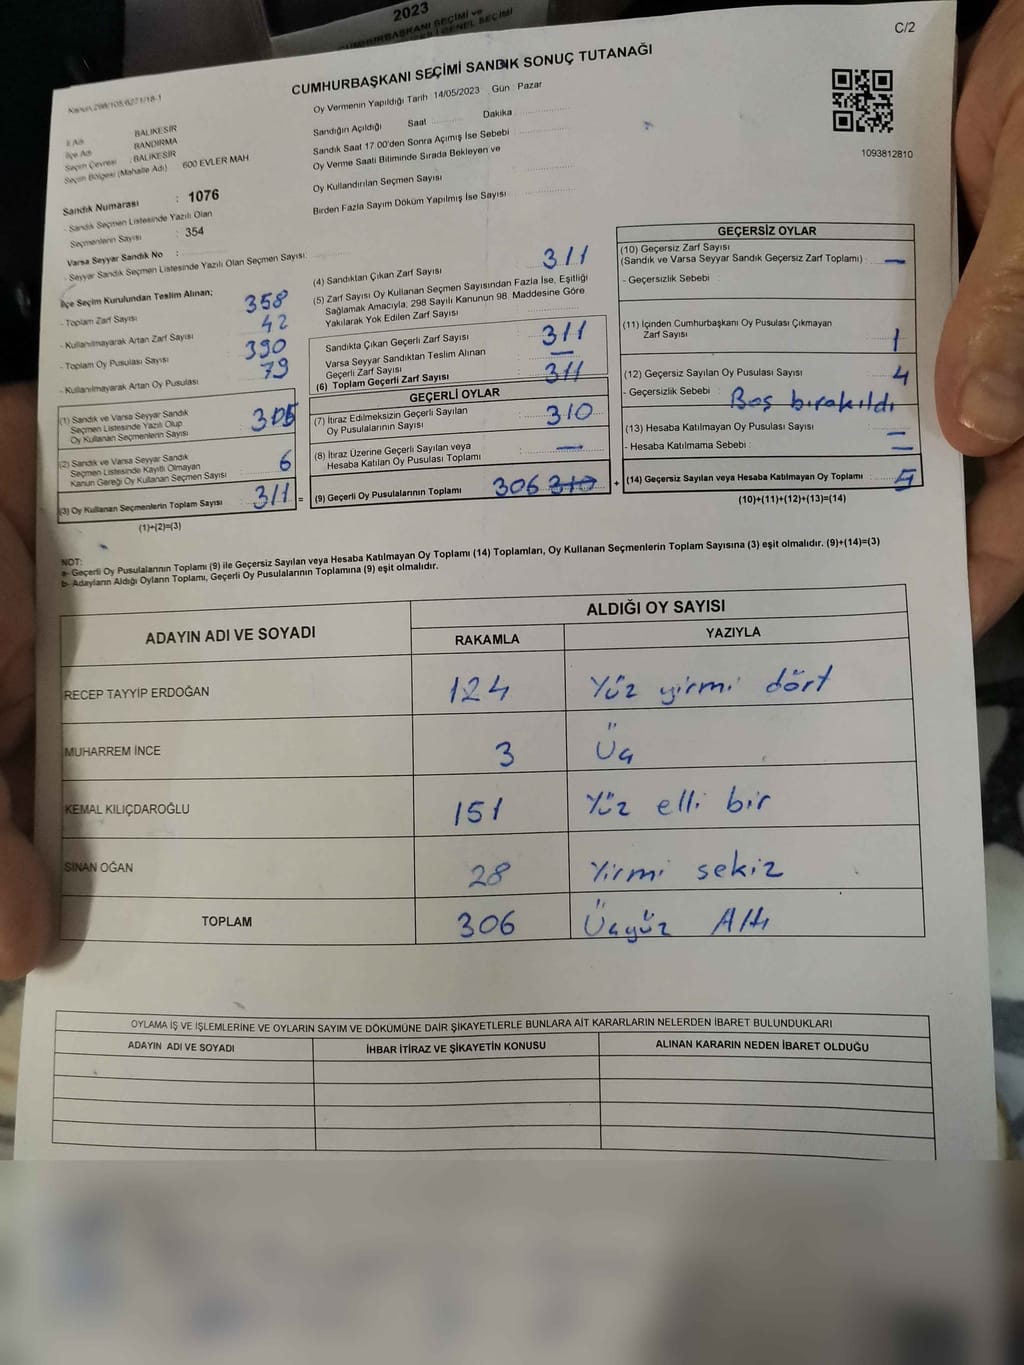 2023
CUMHURBAŞKANI SEÇİMİ ve
GENEL SEÇİMİ
C/2
CUMHURBAŞKANI SEÇİMİ SANDIK SONUÇ TUTANAĞI
Oy Vermenin Yapıldığı Tarih 14/05/2023 Gün : Pazar
Sandığın Açıldığı Saat Dakika
Sandık Saat 17.00'den Sonra Açmış İse Sebebi
Oy Verme Saati Bitiminde Sırada Bekleyen ve
Oy Kullandırılan Seçmen Sayısı
Birden Fazla Sayım Döküm Yapılmış İse Sayısı
1093812810
İl Adı BALIKESİR
İlçe Adı BANDIRMA
Seçim Çevresi : BALIKESİR
Seçim Bölgesi (Mahalle Adı) 600 EVLER MAH
Sandık Numarası : 1076
- Sandık Seçmen Listesinde Yazılı Olan
Seçmenlerin Sayısı : 354
Varsa Seyyar Sandık No :
- Seyyar Sandık Seçmen Listesinde Yazılı Olan Seçmen Sayısı:
İlçe Seçim Kurulundan Teslim Alınan;
- Toplam Zarf Sayısı 358
- Kullanılmayarak Artan Zarf Sayısı 42
- Toplam Oy Pusulası Sayısı 390
- Kullanılmayarak Artan Oy Pusulası 79
(1) Sandık ve Varsa Seyyar Sandık
Seçmen Listesinde Yazılı Olup
Oy Kullanan Seçmenlerin Sayısı 305
(2) Sandık ve Varsa Seyyar Sandık
Seçmen Listesinde Kayıtlı Olmayan
Kanun Gereği Oy Kullanan Seçmen Sayısı 6
(3) Oy Kullanan Seçmenlerin Toplam Sayısı 311 =
(1)+(2)=(3)
(4) Sandıktan Çıkan Zarf Sayısı 311
(5) Zarf Sayısı Oy Kullanan Seçmen Sayısından Fazla İse, Eşitliği
Sağlamak Amacıyla, 298 Sayılı Kanunun 98. Maddesine Göre
Yakılarak Yok Edilen Zarf Sayısı
Sandıkta Çıkan Geçerli Zarf Sayısı 311
Varsa Seyyar Sandıktan Teslim Alınan
Geçerli Zarf Sayısı —
(6) Toplam Geçerli Zarf Sayısı 311
GEÇERLİ OYLAR
(7) İtiraz Edilmeksizin Geçerli Sayılan
Oy Pusulalarının Sayısı 310
(8) İtiraz Üzerine Geçerli Sayılan veya
Hesaba Katılan Oy Pusulası Toplamı —
(9) Geçerli Oy Pusulalarının Toplamı 306 310 +
GEÇERSİZ OYLAR
(10) Geçersiz Zarf Sayısı
(Sandık ve Varsa Seyyar Sandık Geçersiz Zarf Toplamı) : —
- Geçersizlik Sebebi :
(11) İçinden Cumhurbaşkanı Oy Pusulası Çıkmayan
Zarf Sayısı 1
(12) Geçersiz Sayılan Oy Pusulası Sayısı 4
- Geçersizlik Sebebi : Boş bırakıldı
(13) Hesaba Katılmayan Oy Pusulası Sayısı —
- Hesaba Katılmama Sebebi : —
(14) Geçersiz Sayılan veya Hesaba Katılmayan Oy Toplamı 5
(10)+(11)+(12)+(13)=(14)
NOT:
a- Geçerli Oy Pusulalarının Toplamı (9) ile Geçersiz Sayılan veya Hesaba Katılmayan Oy Toplamı (14) Toplamları, Oy Kullanan Seçmenlerin Toplam Sayısına (3) eşit olmalıdır. (9)+(14)=(3)
b- Adayların Aldığı Oyların Toplamı, Geçerli Oy Pusulalarının Toplamına (9) eşit olmalıdır.
ADAYIN ADI VE SOYADI ALDIĞI OY SAYISI
RAKAMLA YAZIYLA
RECEP TAYYİP ERDOĞAN 124 Yüz yirmi dört
MUHARREM İNCE 3 Üç
KEMAL KILIÇDAROĞLU 151 Yüz elli bir
SİNAN OĞAN 28 Yirmi sekiz
TOPLAM 306 Üçyüz Altı
OYLAMA İŞ VE İŞLEMLERİNE VE OYLARIN SAYIM VE DÖKÜMÜNE DAİR ŞİKAYETLERLE BUNLARA AİT KARARLARIN NELERDEN İBARET BULUNDUKLARI
ADAYIN ADI VE SOYADI İHBAR İTİRAZ VE ŞİKAYETİN KONUSU ALINAN KARARIN NEDEN İBARET OLDUĞU